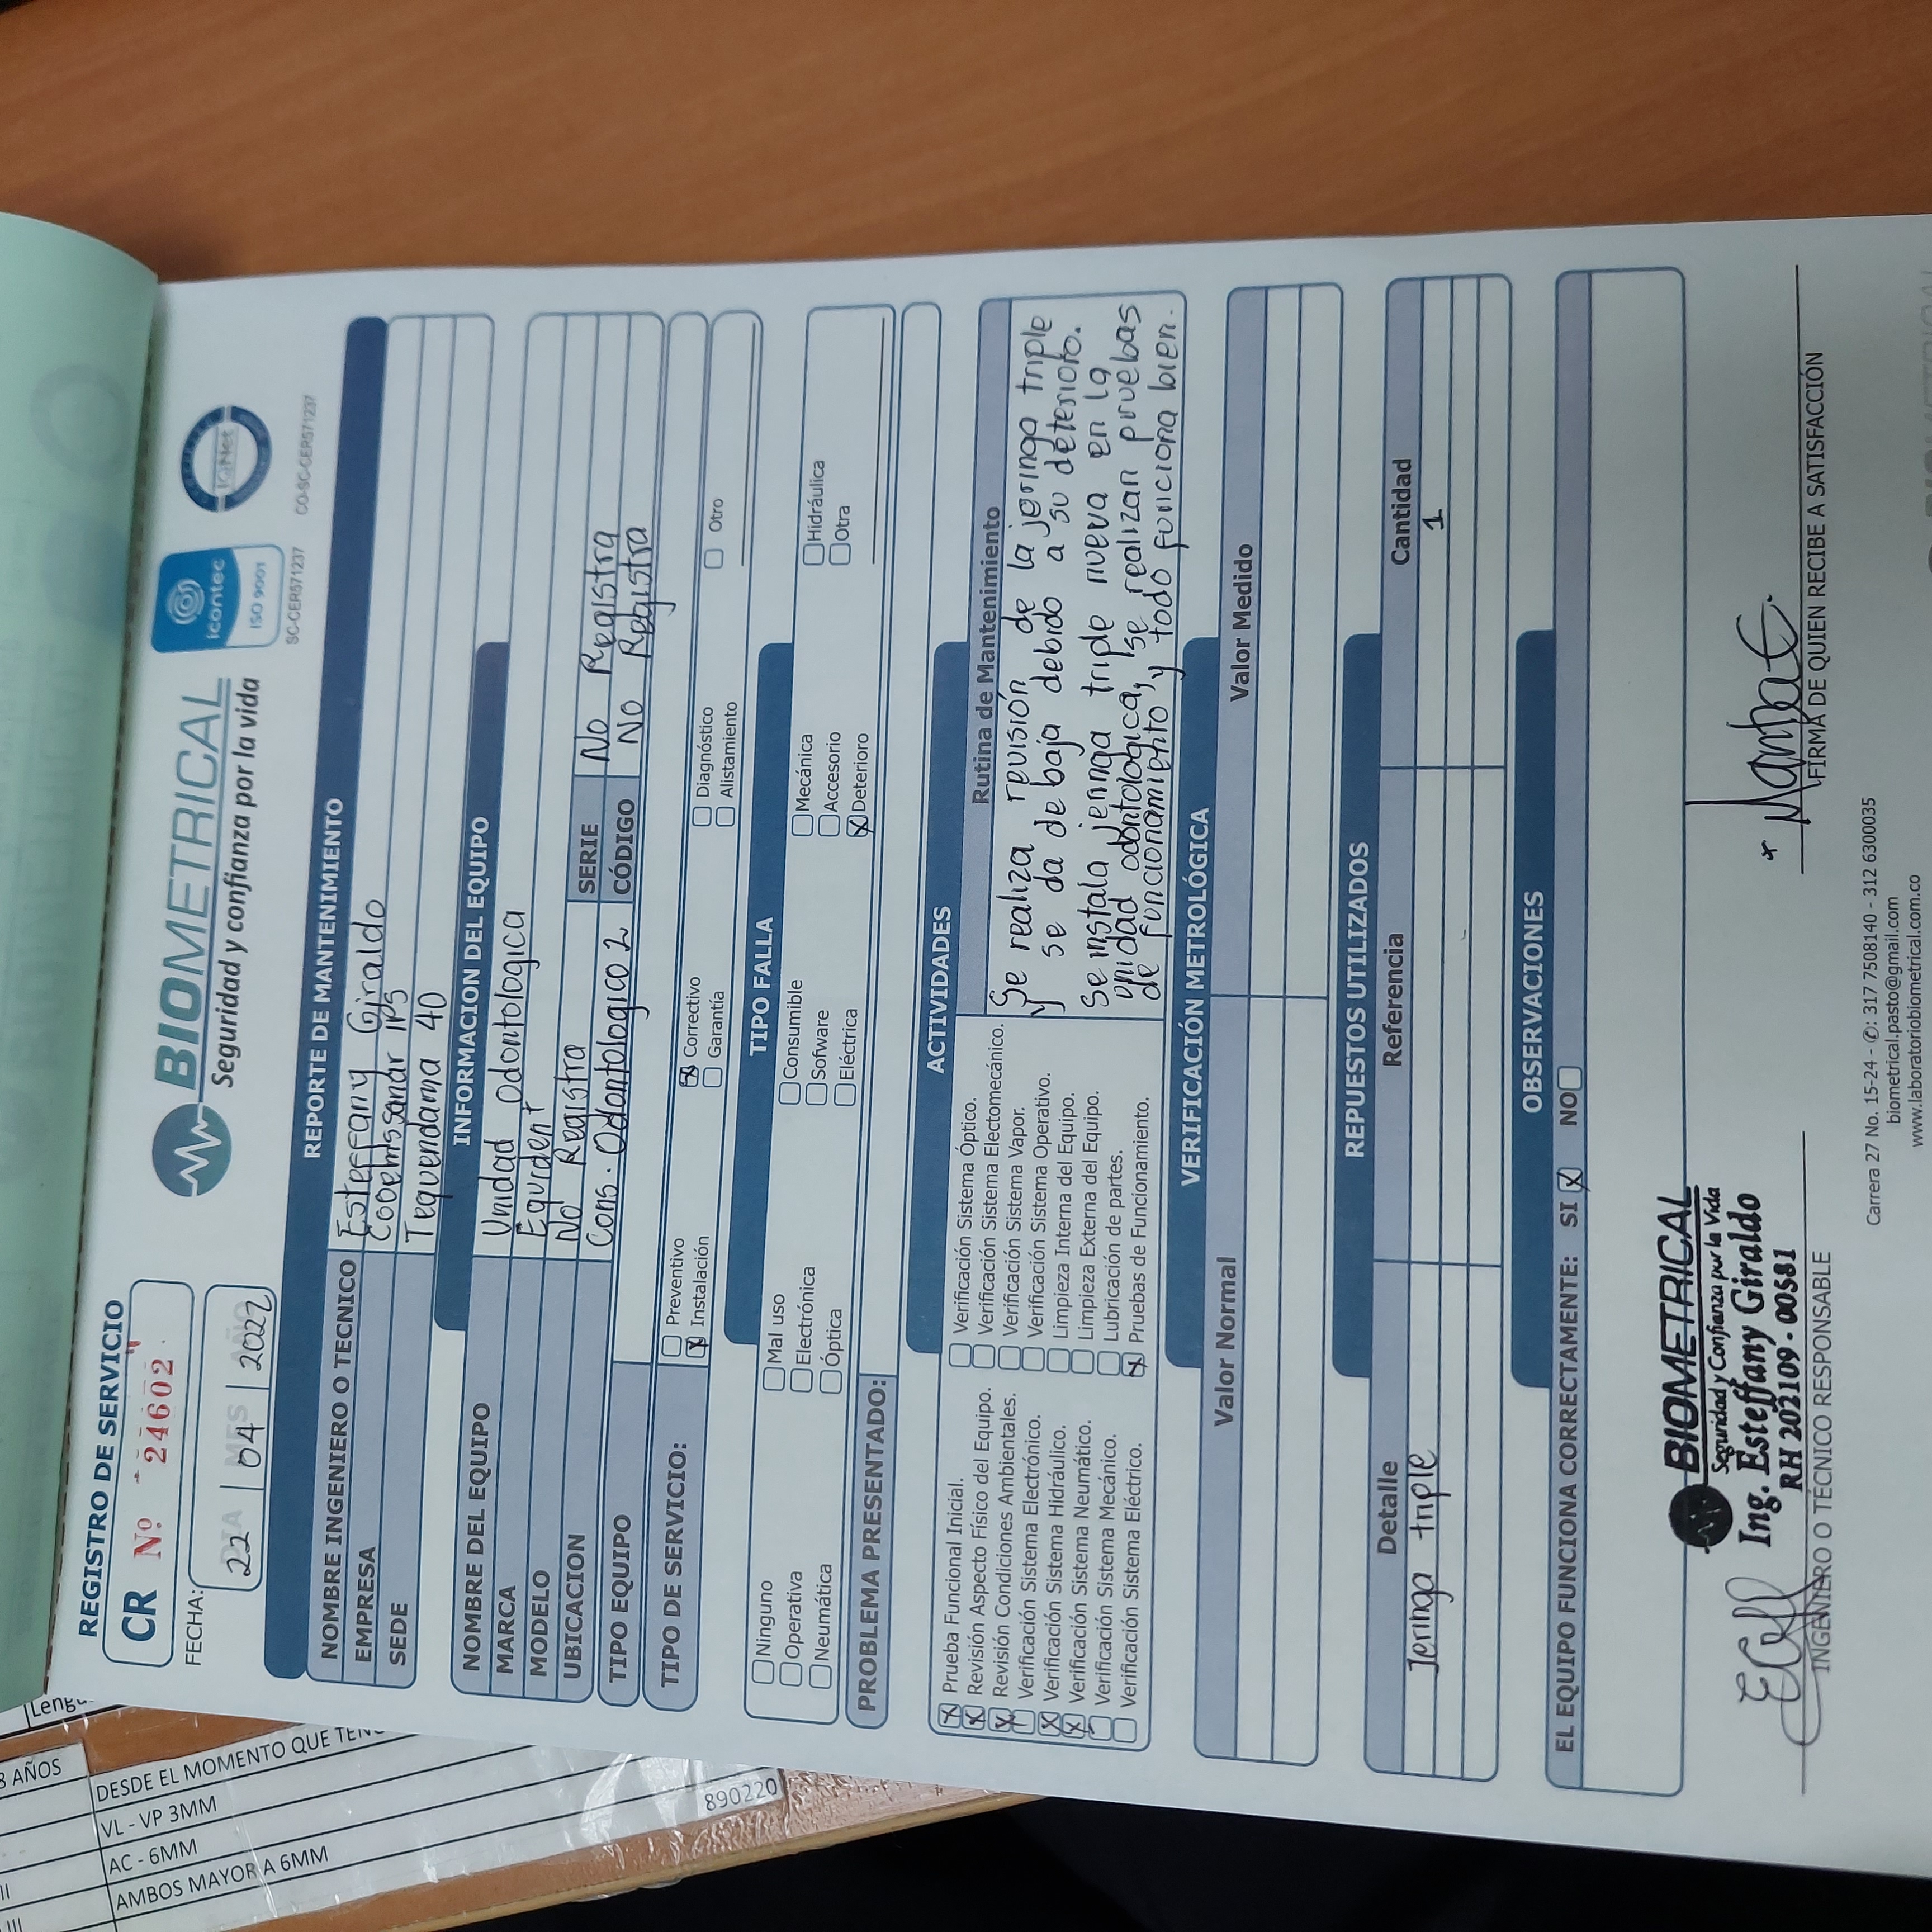 3 AÑOS
DESDE EL MOMENTO QUE
VL - VP 3MM
AC - 6MM
AMBOS MAYOR A 6MM
890220
REGISTRO DE SERVICIO
CR Nº 24602
FECHA:
DIA MES AÑO
22 04 2022
BIOMETRICAL
Seguridad y confianza por la vida
icontec
ISO 9001
SC-CER571237
IQNet
CO-SC-CER571237
REPORTE DE MANTENIMIENTO
NOMBRE INGENIERO O TECNICO Esteffany Giraldo
EMPRESA Cooemssanar IPS
SEDE Tequendama 40
INFORMACION DEL EQUIPO
NOMBRE DEL EQUIPO Unidad Odontologica
MARCA Equident
MODELO No Registra SERIE No Registra
UBICACION Cons. Odontologico 2 CÓDIGO No Registra
TIPO EQUIPO
TIPO DE SERVICIO: Preventivo Correctivo Diagnóstico Otro
Instalación Garantía Alistamiento
TIPO FALLA
Ninguno Mal uso Consumible Mecánica Hidráulica
Operativa Electrónica Sofware Accesorio Otra
Neumática Óptica Eléctrica Deterioro
PROBLEMA PRESENTADO:
ACTIVIDADES
Prueba Funcional Inicial.
Revisión Aspecto Físico del Equipo.
Revisión Condiciones Ambientales.
Verificación Sistema Electrónico.
Verificación Sistema Hidráulico.
Verificación Sistema Neumático.
Verificación Sistema Mecánico.
Verificación Sistema Eléctrico.
Verificación Sistema Óptico.
Verificación Sistema Electomecánico.
Verificación Sistema Vapor.
Verificación Sistema Operativo.
Limpieza Interna del Equipo.
Limpieza Externa del Equipo.
Lubricación de partes.
Pruebas de Funcionamiento.
Rutina de Mantenimiento
Se realiza revisión de la jeringa triple
y se da de baja debido a su deterioro.
Se instala jeringa triple nueva en la
unidad odontologica, se realizan pruebas
de funcionamiento y todo funciona bien.
VERIFICACIÓN METROLÓGICA
Valor Normal Valor Medido
REPUESTOS UTILIZADOS
Detalle Referencia Cantidad
Jeringa triple 1
OBSERVACIONES
EL EQUIPO FUNCIONA CORRECTAMENTE: SI NO
BIOMETRICAL
Seguridad y Confianza por la Vida
Ing. Esteffany Giraldo
RH 202109 - 00581
INGENIERO O TÉCNICO RESPONSABLE
FIRMA DE QUIEN RECIBE A SATISFACCIÓN
Carrera 27 No. 15-24 - ✆: 317 7508140 - 312 6300035
biometrical.pasto@gmail.com
www.laboratoriobiometrical.com.co